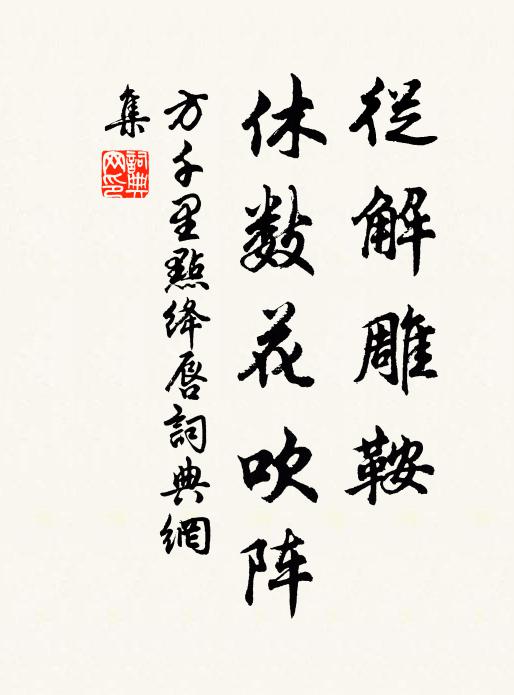 從解雕鞍
休数花吹阵
方千里點绛唇詞典網
集
詞典
网印